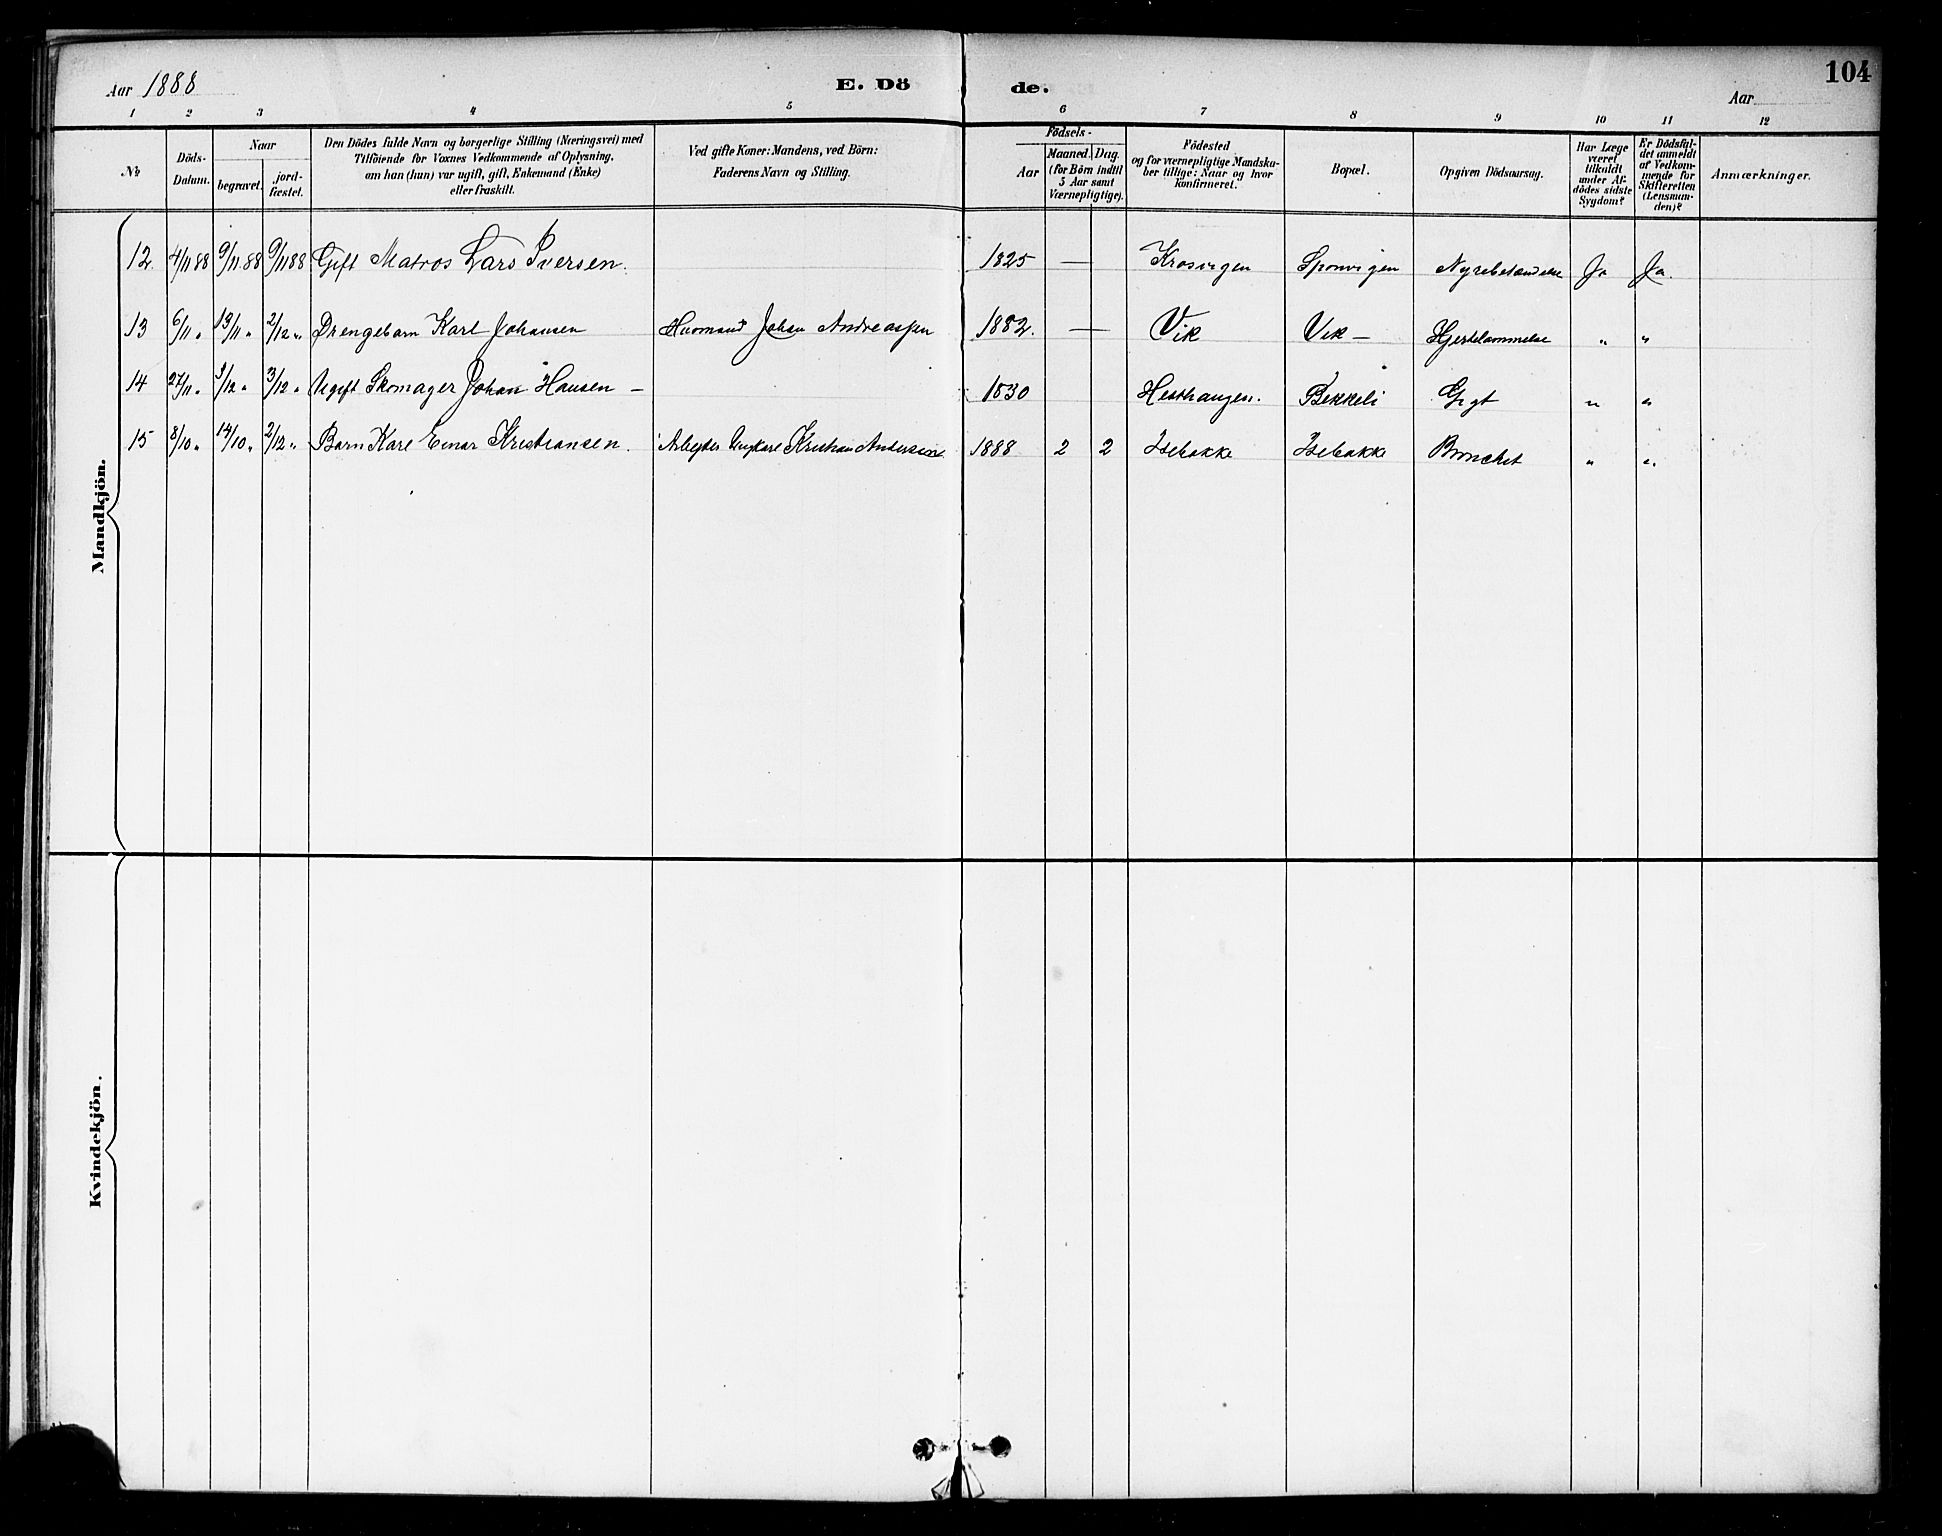 Aar 1888 E. Dö de. Aar 104
1 2 3 4 5 6 7 8 9 10 11 12
No
Döds-Datum.
Naar
begravet. jord-fæstet.
Den Dödes fulde Navn og borgerlige Stilling (Næringsvei) med
Tilföiende for Voxnes Vedkommende af Oplysning,
om han (hun) var ugift, gift, Enkemand (Enke)
eller fraskilt.
Ved gifte Koner: Mandens, ved Börn:
Faderens Navn og Stilling.
Födsels-
Aar Maaned. Dag.
(for Börn indtil
5 Aar samt
Værnepligtige).
Födested
og for værnepligtige Mandska-
ber tillige: Naar og hvor
konfirmeret.
Bopæl.
Opgiven Dödsaarsag.
Har Læge
været
tilkaldt
under Af-
dödes sidste
Sygdom?
Er Dödsfal-
det anmeldt
af Vedkom-
mende for
Skifteretten
(Lensman-
den)?
Anmærkninger.
Mandkjön.
12. 4/11 88 9/11 88 9/11 88 Gift Matros Lars Iversen. 1825 — Krosvigen Sponvigen Nyrebetændelse Ja Ja.
13 6/11 „ 13/11 „ 2/12 „ Drengebarn Karl Johansen Husmand Johan Andreassen 1882. — Vik Vik — Hjertelammelse „ „
14 27/11 „ 3/12 „ 3/12 „ Ugift Skomager Johan Hansen — 1830 Hesthaugen. Bekkeli Gigt „ „
15 8/10 „ 14/10 „ 2/12 „ Barn Karl Einar Kristiansen. Arbejder Ungkarl Kristian Andersen 1888 2 2 Isebakke Isebakke Bronchit „ „
Kvindekjön.